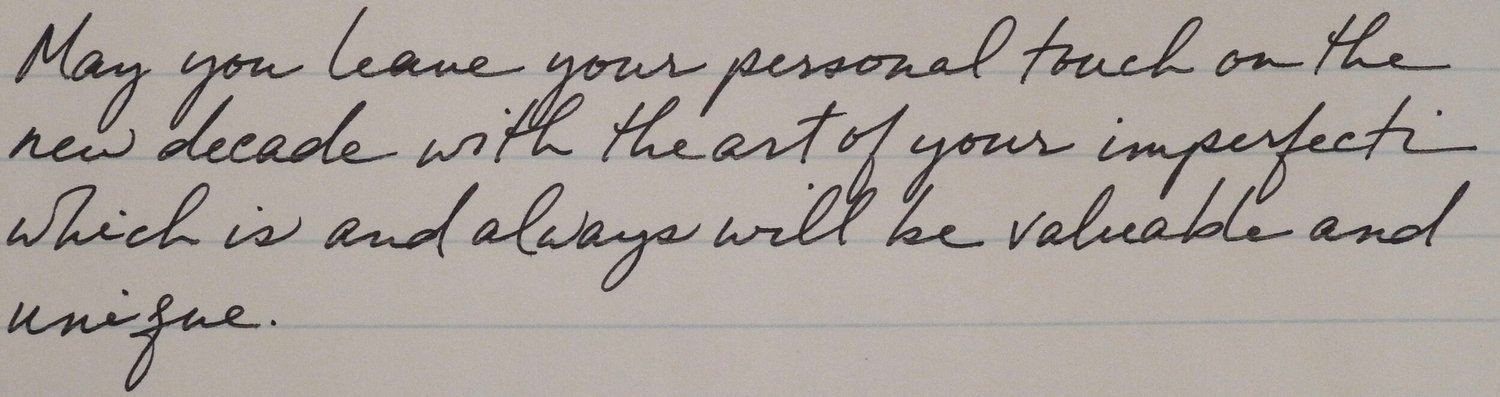 May you leave your personal touch on the
new decade with the art of your imperfecti
which is and always will be valuable and
unique.